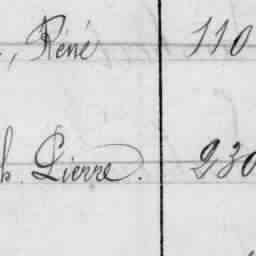 , René 110
h. Pierre. 230